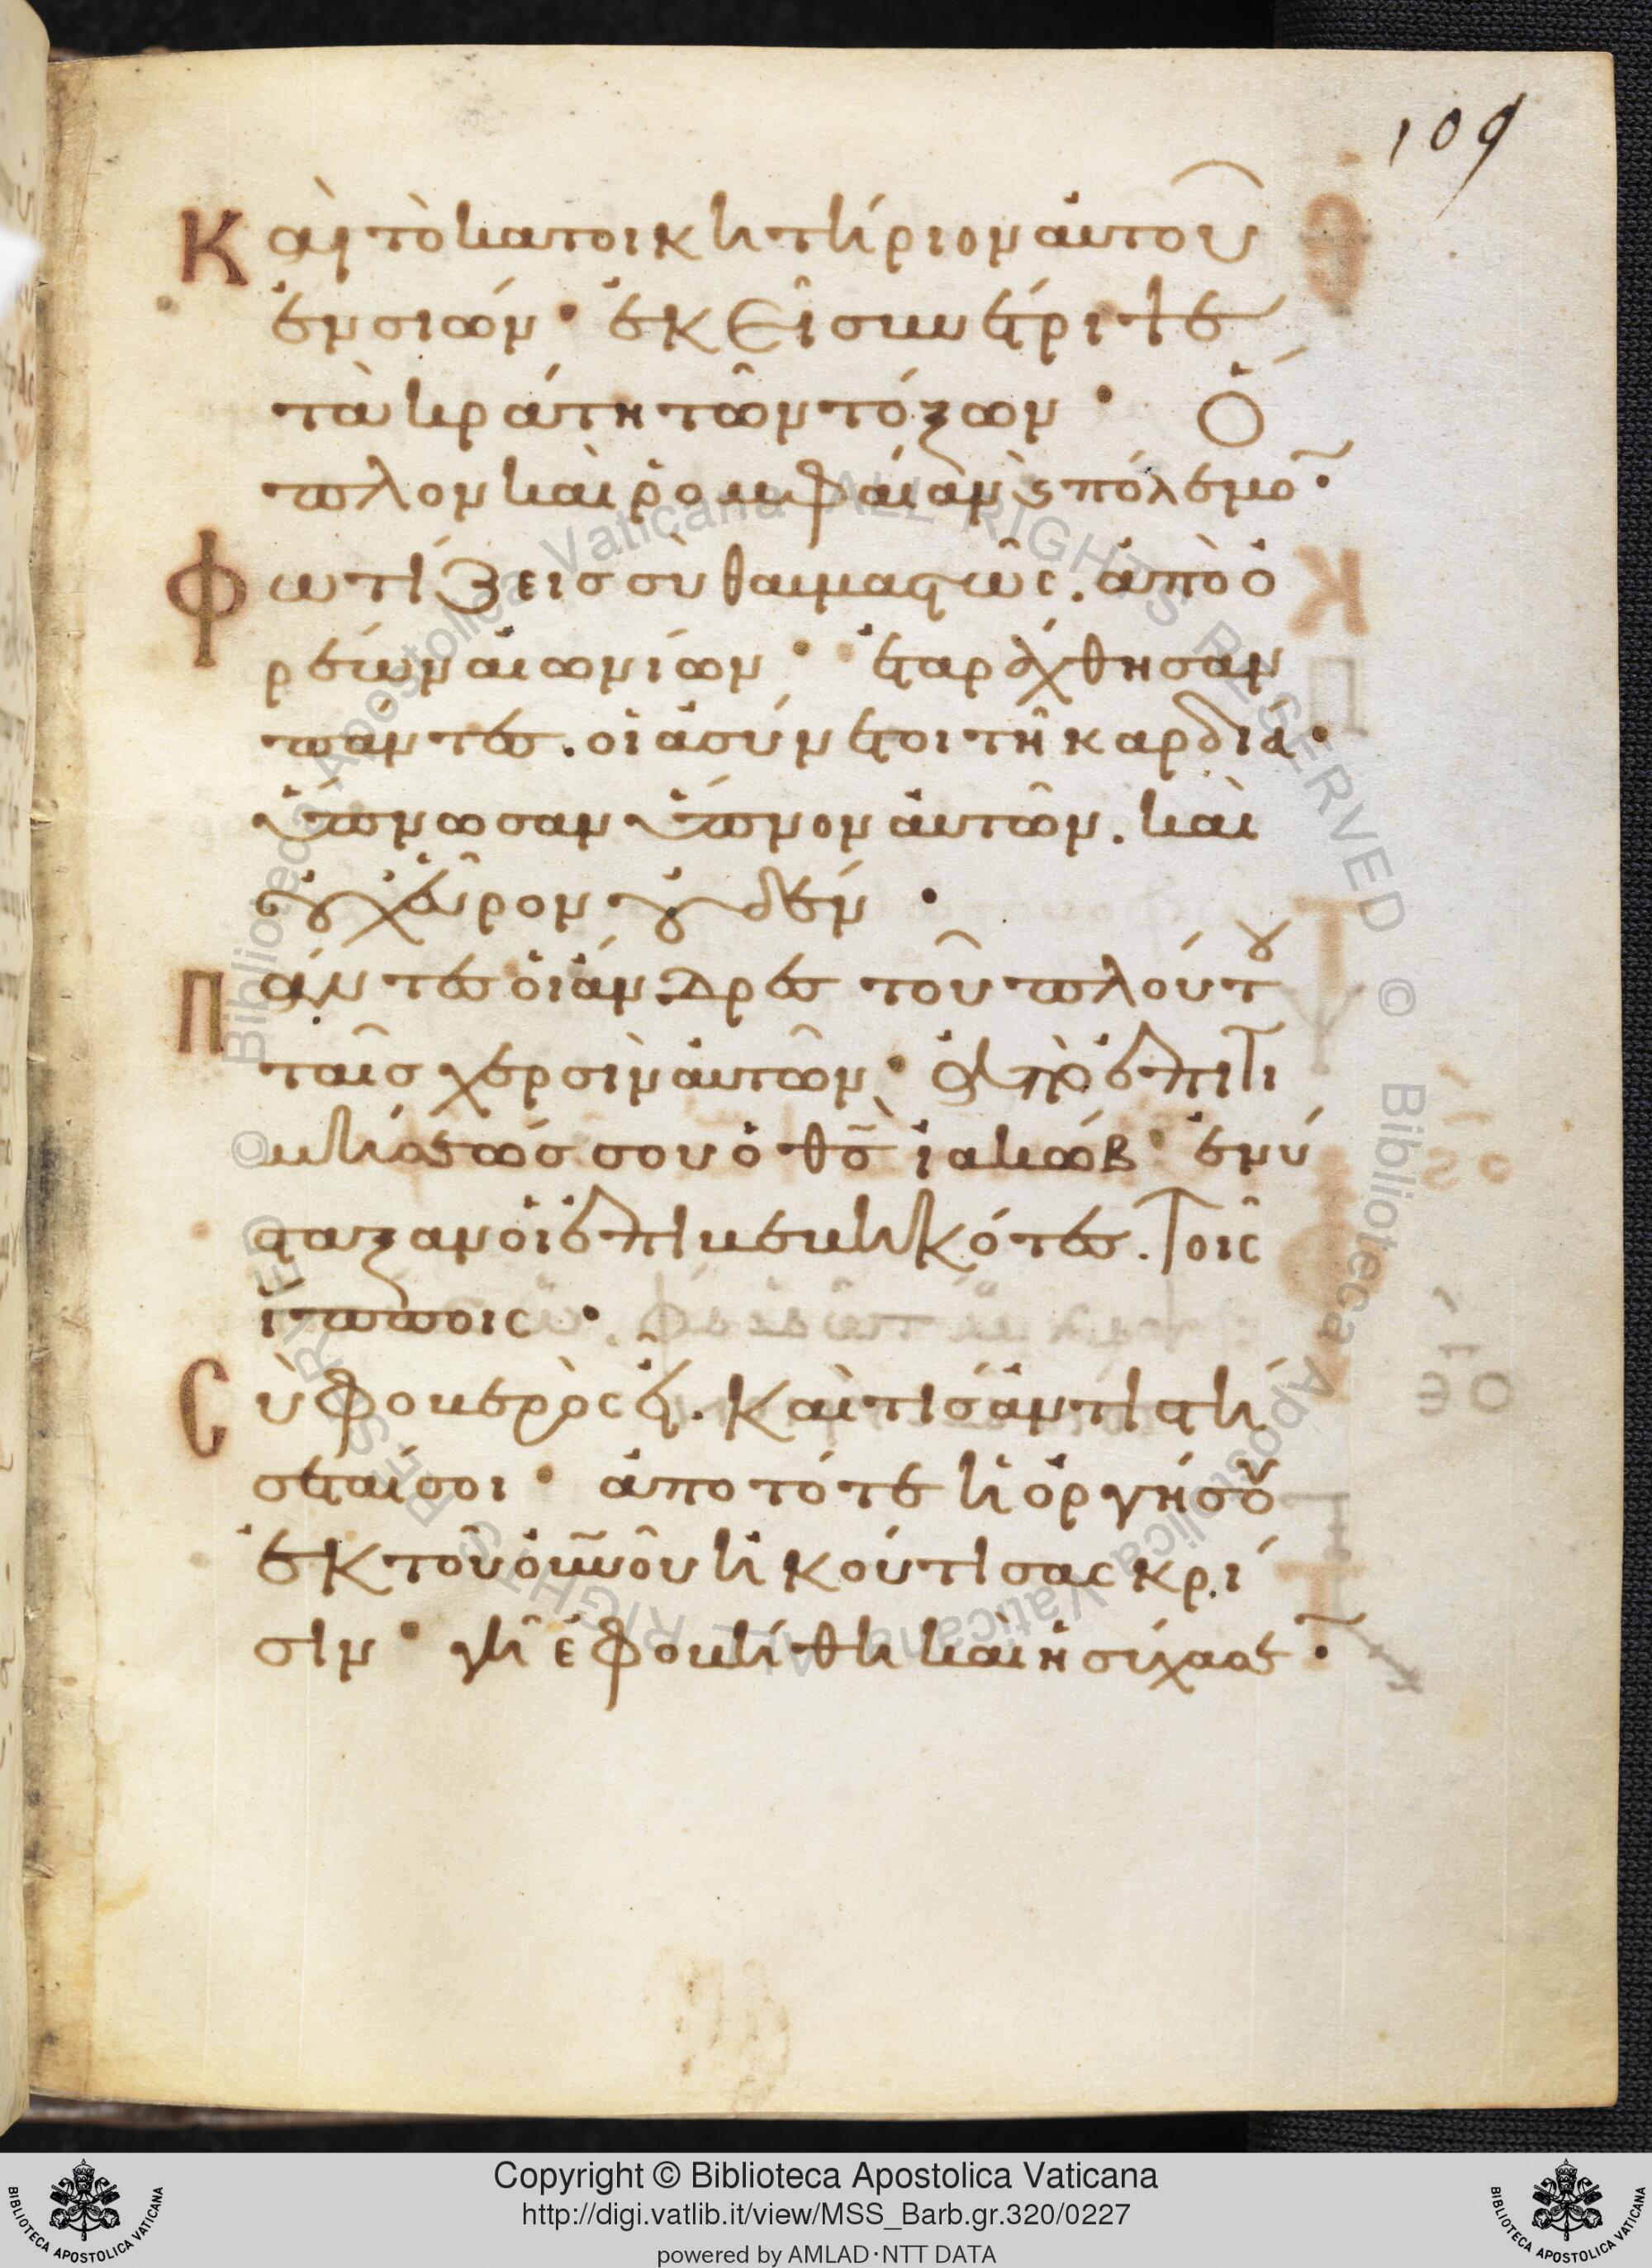 109
Καὶ τὸ κατοικητήριον αὐτοῦ
ἐν σιών· ἐκεῖ συνέτριψε
τὰ κράτη τῶν τόξων· ὅ
πλον καὶ ῥομφαίαν ϗ πόλεμο̅·
Φωτίζεις σὺ θαυμαστῶς. ἀπὸ ὀ
ρέων αἰωνίων· ἐταράχθησαν
πάντες. οἱ ἀσύνετοι τῆ καρδία·
ὕπνωσαν ὕπνον αὐτῶν. καὶ
οὐχ εὗρον οὐδέν·
Πάντες οἱ ἄνδρες τοῦ πλούτου
ταῖς χερσὶν αὐτῶν· ἀπὸ ἐπιτι
μήσεώς σου ὁ θς̅ ἰακώβ· ἐνύ
σταξαν οἱ ἐπιβεβηκότες. τοῖς
ἵπποις·
Σὺ φοβερὸς εἶ. Καὶ τίς ἀντιστή
σεταί σοι· ἀπὸ τότε ἡ ὀργή σου
ἐκ τοῦ οὐ̅νοῦ ἠκούτισας κρί
σιν· γῆ ἐφοβήθη καὶ ἡσύχασε·
Copyright © Biblioteca Apostolica Vaticana
http://digi.vatlib.it/view/MSS_Barb.gr.320/0227
powered by AMLAD·NTT DATA
BIBLIOTECA APOSTOLICA VATICANA
BIBLIOTECA APOSTOLICA VATICANA
© Biblioteca Apostolica Vaticana ALL RIGHTS RESERVED © Biblioteca Apostolica Vaticana ALL RIGHTS RESERVED